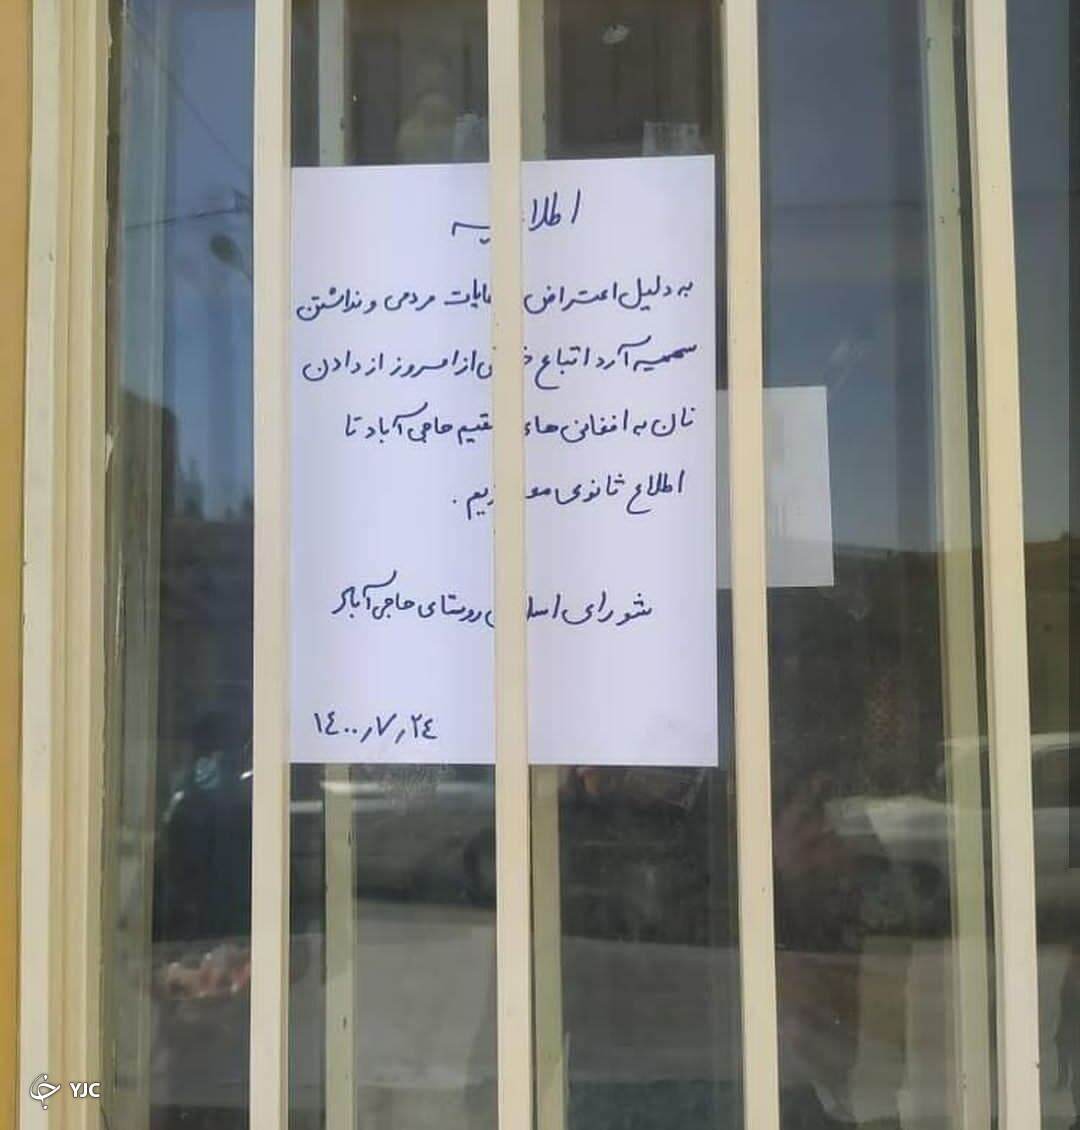 اطلاعیه
به دلیل اعتراض شکایات مردمی و نداشتن
سهمیه آرد اتباع خارجی از امروز از دادن
نان به افغانی های مقیم حاجی آباد تا
اطلاع ثانوی معذوریم .
شورای اسلامی روستای حاجی آباد
۱۴۰۰٫۷٫۲۴
YJC